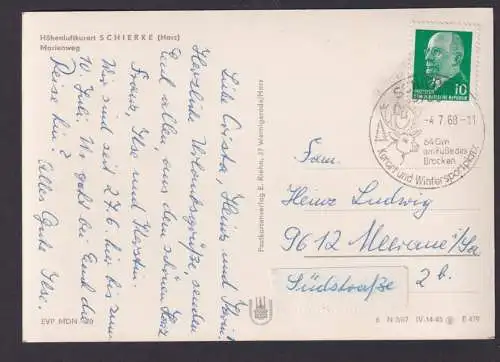 Höhenluftkurort SCHIERKE (Harz)
Marienweg
Liebe Christa, Heinz und Karin!
Herzliche Urlaubsgrüße, senden
Euch allen aus dem schönen Harz
Frank, Ilse und Kerstin.
Wir sind seit 27.6. hier bis zum
10. Juli. Wo geht bei Euch die
Reise hin? Alles Gute Ilse.
EVP MDN
Postkartenverlag E. Riehn, 37 Wernigerode/Harz
10
DEUTSCHE
DEMOKRATISCHE REPUBLIK
-4.7.68-11
640m
am Fuße des
Brocken
Kurort und Wintersportplatz
Fam.
Heinz Ludwig
9612 Meerane i/Sa
Südstraße 2b.
6 N 5/67 IV-14-45 E 479